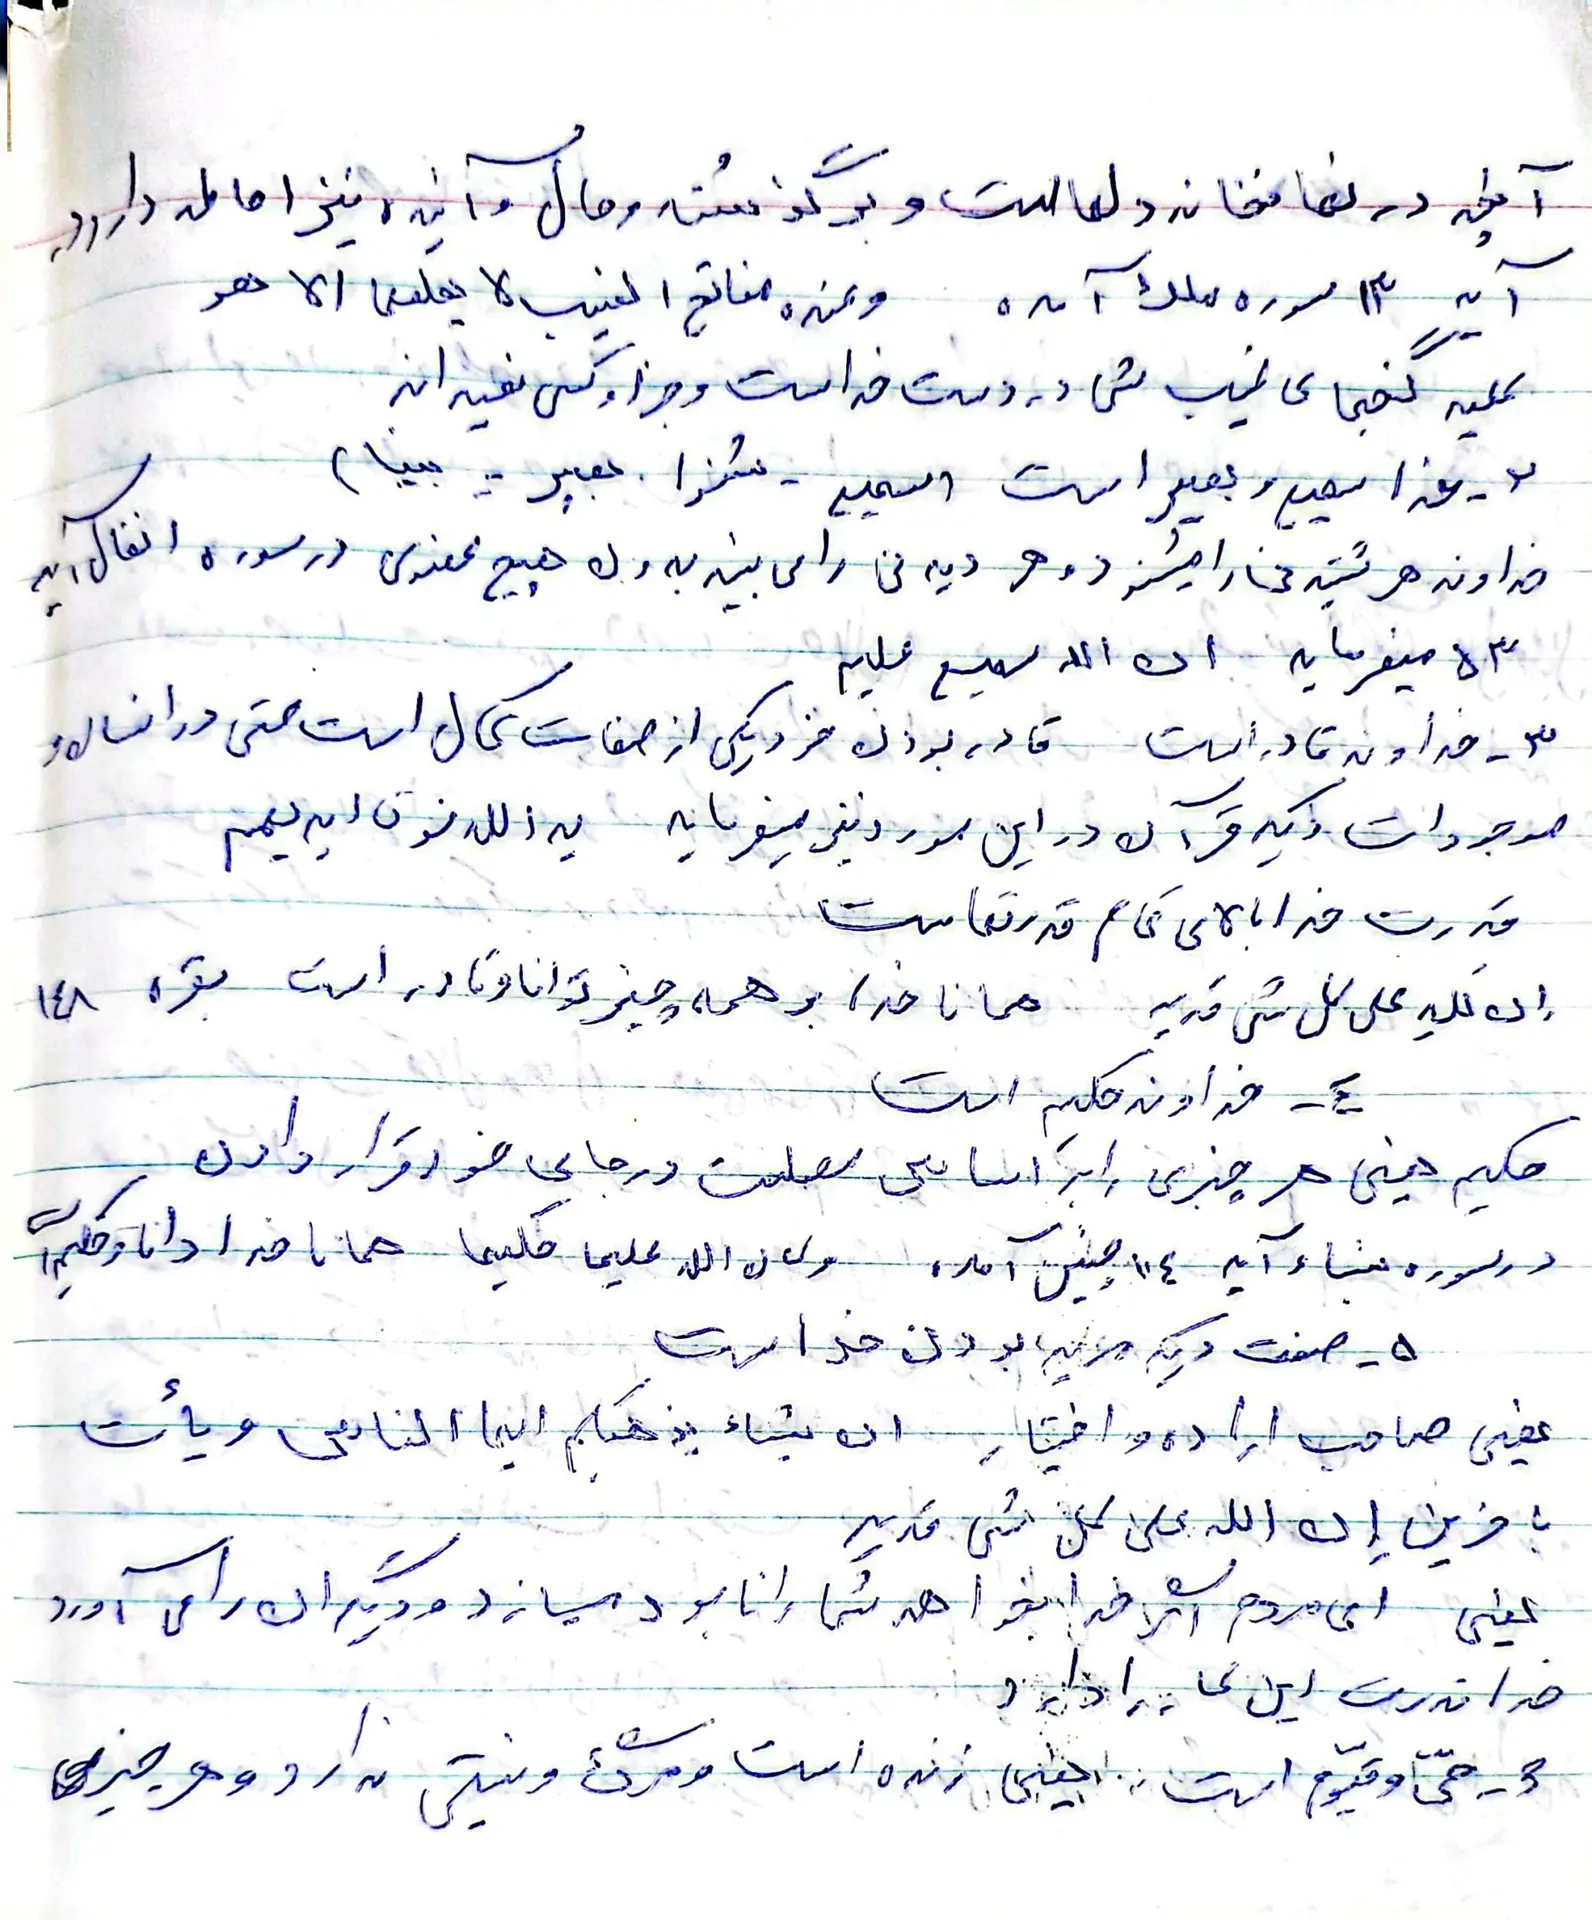 آنچه در نهانخانه دلهاست و بر گذشته و حال و آینده نیز احاطه دارد
آیه ۱۳ سوره ملک آمده وعنده مفاتح الغیب لا یعلمها الا هو
کلید گنجهای غیب در دست خداست و جز او کسی نمیداند
۲- خدا سمیع و بصیر است (سمیع - شنوا . بصیر - بینا)
خداوند هر شنیدنی را میشنود و هر دیدنی را می بیند بدون هیچ عضوی در سوره انفال آیه
۵۳ میفرماید ان الله سمیع علیم
۳- خداوند قادر است قادر بودن خود یکی از صفات کمال است حتی در انسان و
موجودات دیگر قرآن در این مورد نیز میفرماید ید الله فوق ایدیهم
قدرت خدا بالای تمام قدرتهاست
إن الله علی کل شی قدیر همانا خدا بر همه چیز توانا و قادر است بقره ۱٤۸
٤- خداوند حکیم است
حکیم یعنی هر چیزی را بر اساس مصلحت در جای خود قرار دادن
در سوره نساء آیه ۱۰٤ چنین آمده وکان الله علیما حکیما همانا خدا دانا و حکیم است
۵- صفت دیگر مرید بودن خداست
یعنی صاحب اراده و اختیار ان یشاء یذهبکم ایها الناس و یأت
باخرین إن الله علی کل شی قدیر
یعنی ای مردم اگر خدا بخواهد شما را نابود میسازد و دیگران را می آورد
خدا قدرت این کار را دارد
و - حیّ و قیّوم است یعنی زنده است و مرگ و نیستی ندارد و هر چیزی